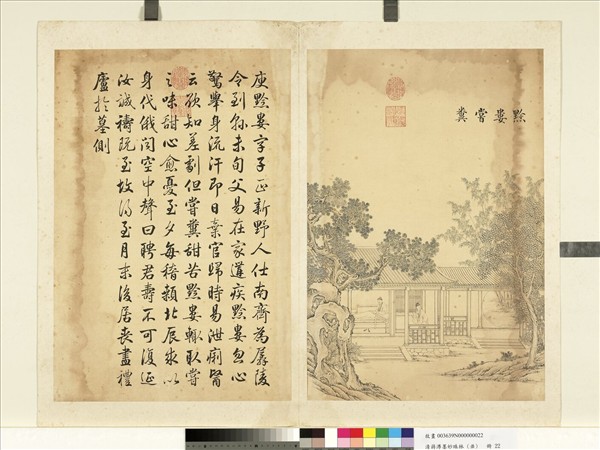 黔婁嘗糞
庾黔婁字子正新野人仕南齊為孱陵
令到縣未旬父易在家遘疾黔婁忽心
驚舉身流汗即日棄官歸時易泄痢醫
云欲知差劇但嘗糞甜苦黔婁輒取嘗
之味甜心愈憂至夕每稽顙北辰求以
身代俄聞空中聲曰聘君壽不可復延
汝誠禱既至故得至月末後居喪盡禮
廬於墓側
故畫 003639N000000022
清蔣溥墨妙珠林 冊 22